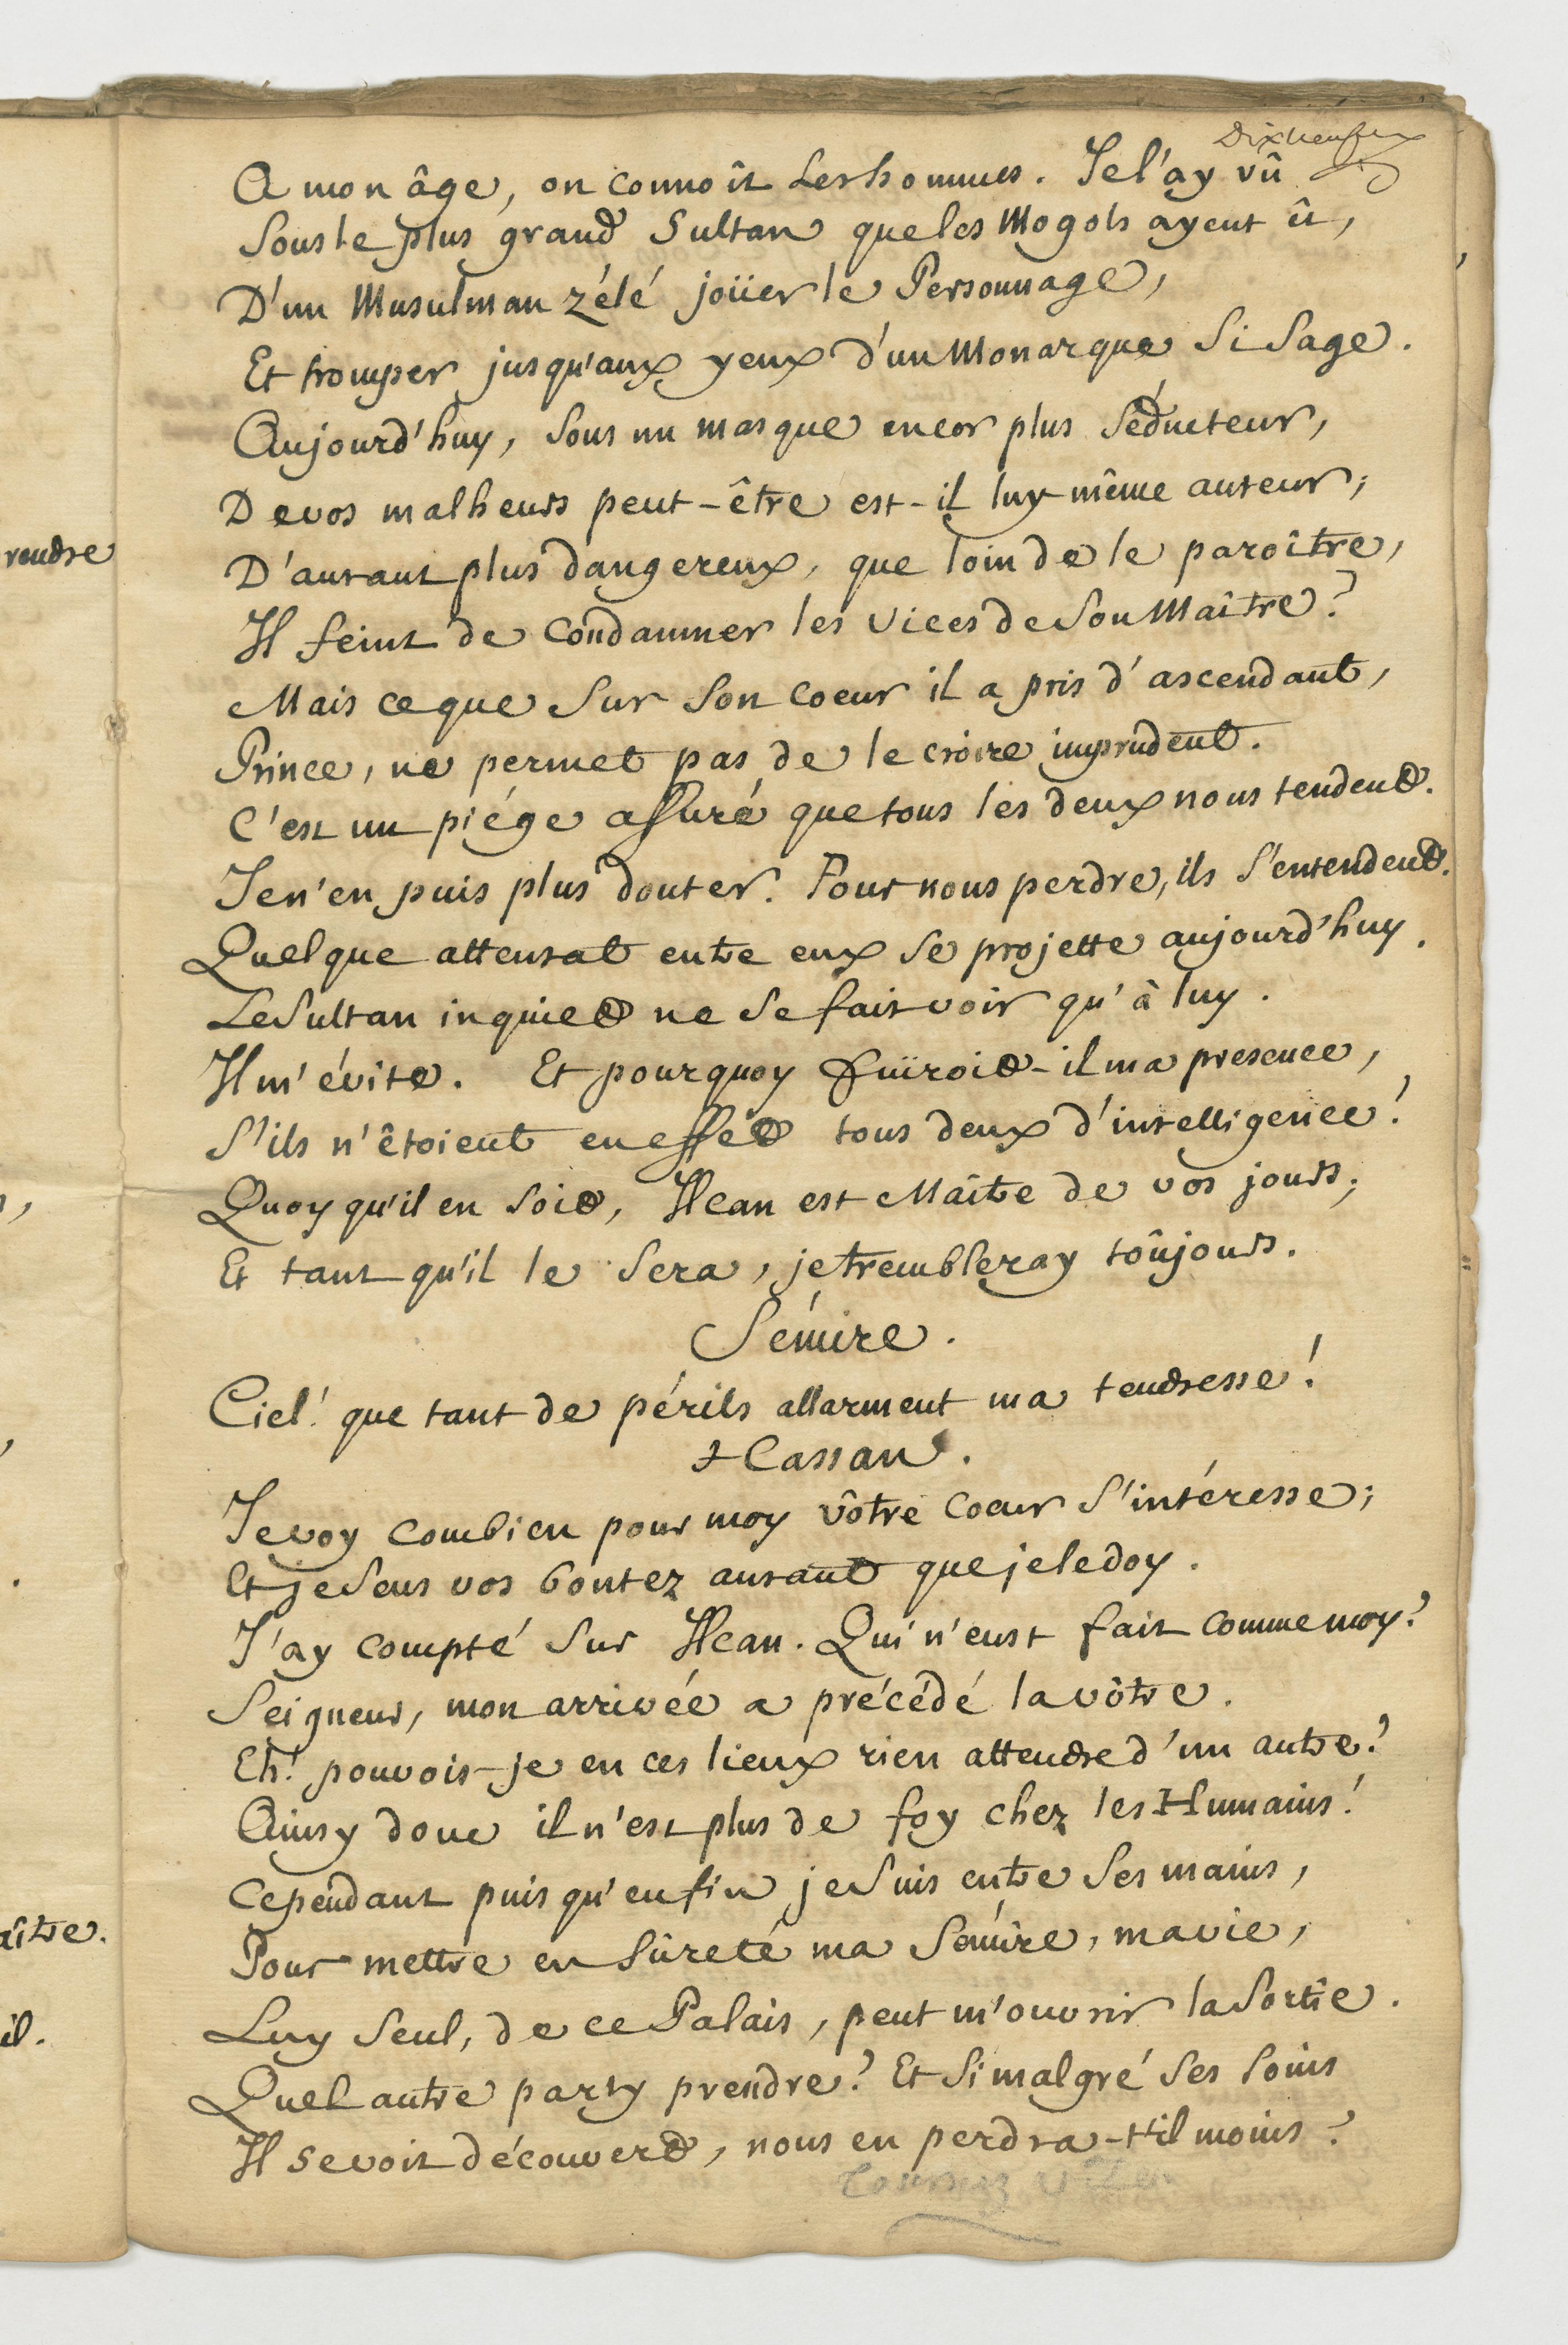 Dixneuf
A mon âge, on connoît les hommes. Je l'ay vû
Sous le plus grand Sultan que les Mogols ayent û,
D'un Musulman zélé joüer le Personnage,
Et tromper jusqu'aux yeux d'un Monarque si sage.
Aujourd'huy, sous un masque encor plus séducteur,
De vos malheurs peut-être est-il luy-même auteur;
rendre
D'autant plus dangereux, que loin de le paroître,
Il feint de condamner les vices de son Maître?
Mais ce que sur son coeur il a pris d'ascendant,
Prince, ne permet pas de le croire imprudent.
C'est un piége assuré que tous les deux nous tendent.
Je n'en puis plus douter. Pour nous perdre, ils s'entendent.
Quelque attentat entre eux se projette aujourd'huy.
Le Sultan inquiet ne se fait voir qu'à luy.
Il m'évite. Et pourquoy fuïroit-il ma presence,
S'ils n'êtoient en effet tous deux d'intelligence!
Quoy qu'il en soit, Ilcan est Maître de vos jours;
Et tant qu'il le sera, je trembleray toûjours.
Sémire.
Ciel! que tant de périls allarment ma tendresse!
Hcassan.
Je voy combien pour moy vôtre coeur s'intéresse;
Et je sens vos bontez autant que je le doy.
J'ay compté sur Ilcan. Qui n'eust fait comme moy?
Seigneur, mon arrivée a précédé la vôtre.
Eh! pouvois-je en ces lieux rien attendre d'un autre?
Ainsy donc il n'est plus de foy chez les Humains!
Cependant puis qu'enfin je suis entre ses mains,
aître.
Pour mettre en sûreté ma Sémire, ma vie,
Luy seul, de ce Palais, peut m'ouvrir la sortie.
il.
Quel autre party prendre? Et si malgré ses soins
Il se voit découvert, nous en perdra-t'il moins?
Tournez